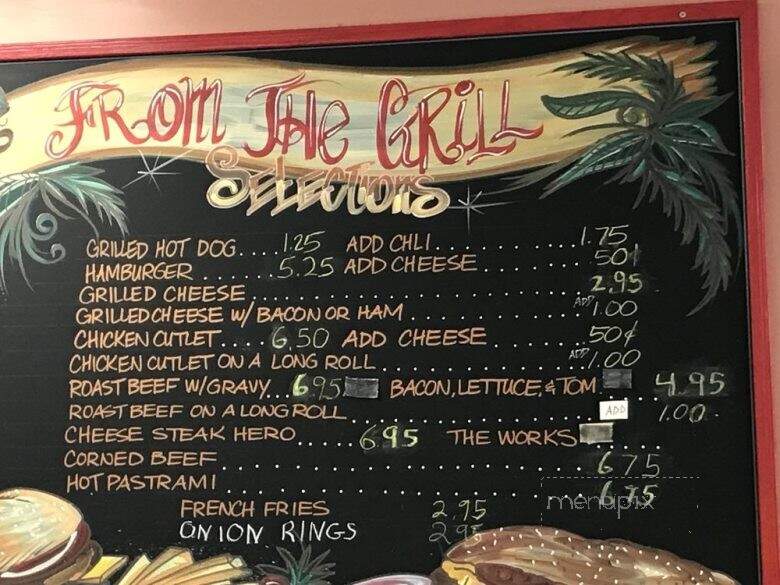 FROM THE GRILL
SELECTIONS
GRILLED HOT DOG.... 1.25 ADD CHLI.............. 1.75
HAMBURGER ....... 5.25 ADD CHEESE........... 50¢
GRILLED CHEESE................................ 2.95
GRILLED CHEESE W/ BACON OR HAM............. ADD 1.00
CHICKEN CUTLET.... 6.50 ADD CHEESE........ 50¢
CHICKEN CUTLET ON A LONG ROLL............. ADD 1.00
ROAST BEEF W/GRAVY... 6.95 BACON, LETTUCE, & TOM 4.95
ROAST BEEF ON A LONG ROLL................ ADD 1.00
CHEESE STEAK HERO..... 6.95 THE WORKS
CORNED BEEF.............................. 6.75
HOT PASTRAMI............................ 6.75
FRENCH FRIES 2.95
ONION RINGS 2.95
menupix